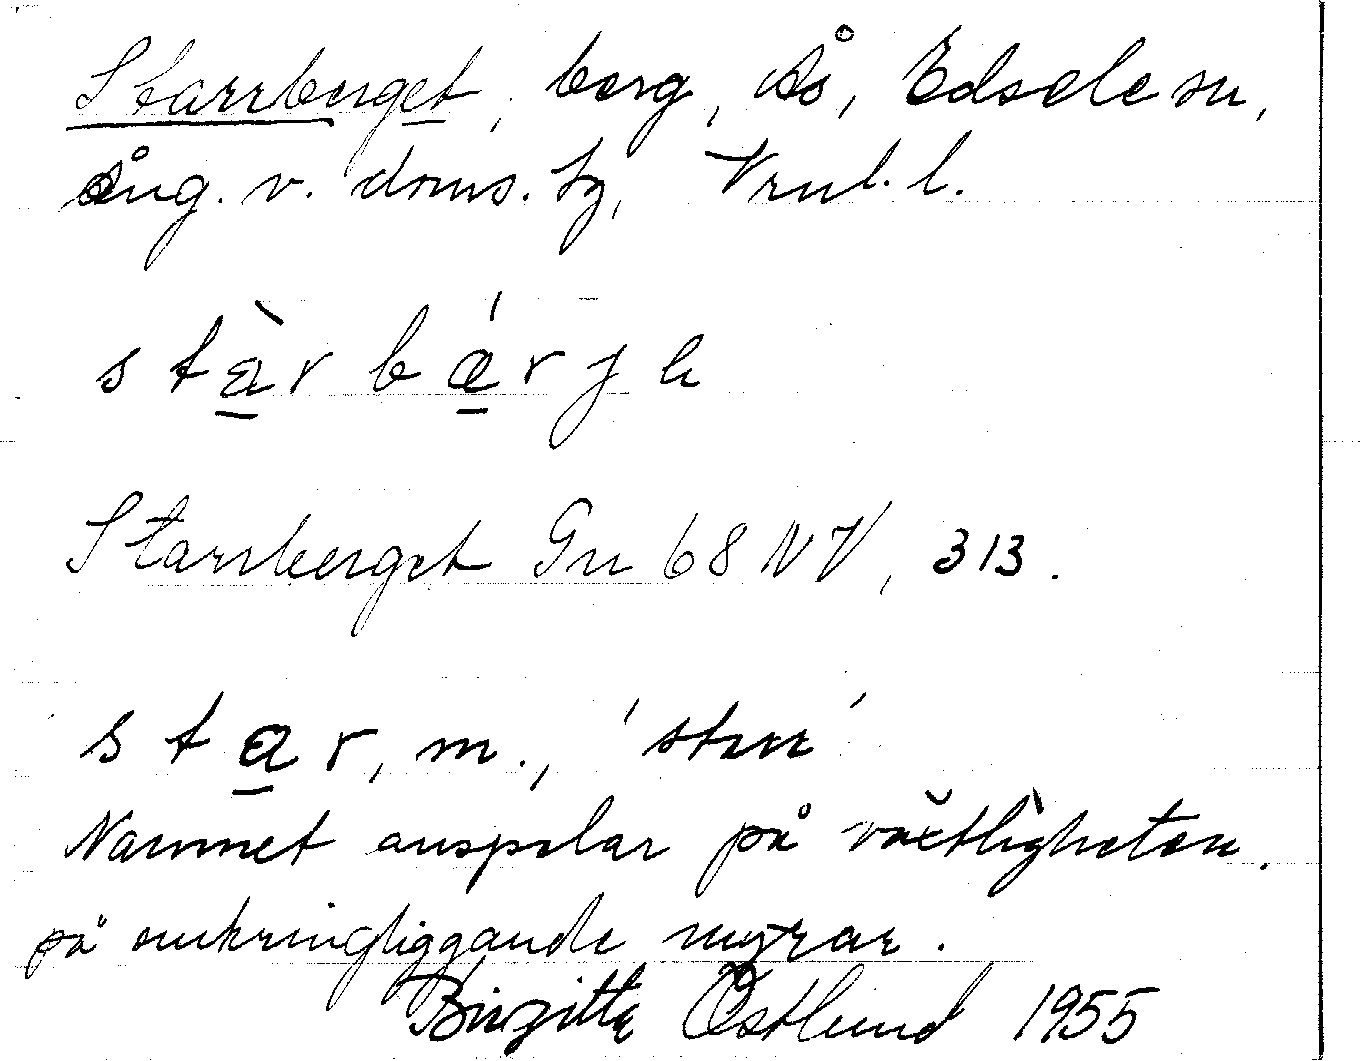 Starrberget, berg, Ås, Edsele sn,
Ång. v. doms. tg, Vnl. l.
stàrbárj
Starrberget Gn 68 NV, 313.
star, m., 'starr'
Namnet anspelar på växtligheten
på omkringliggande myrar.
Birgitta Östlund 1955